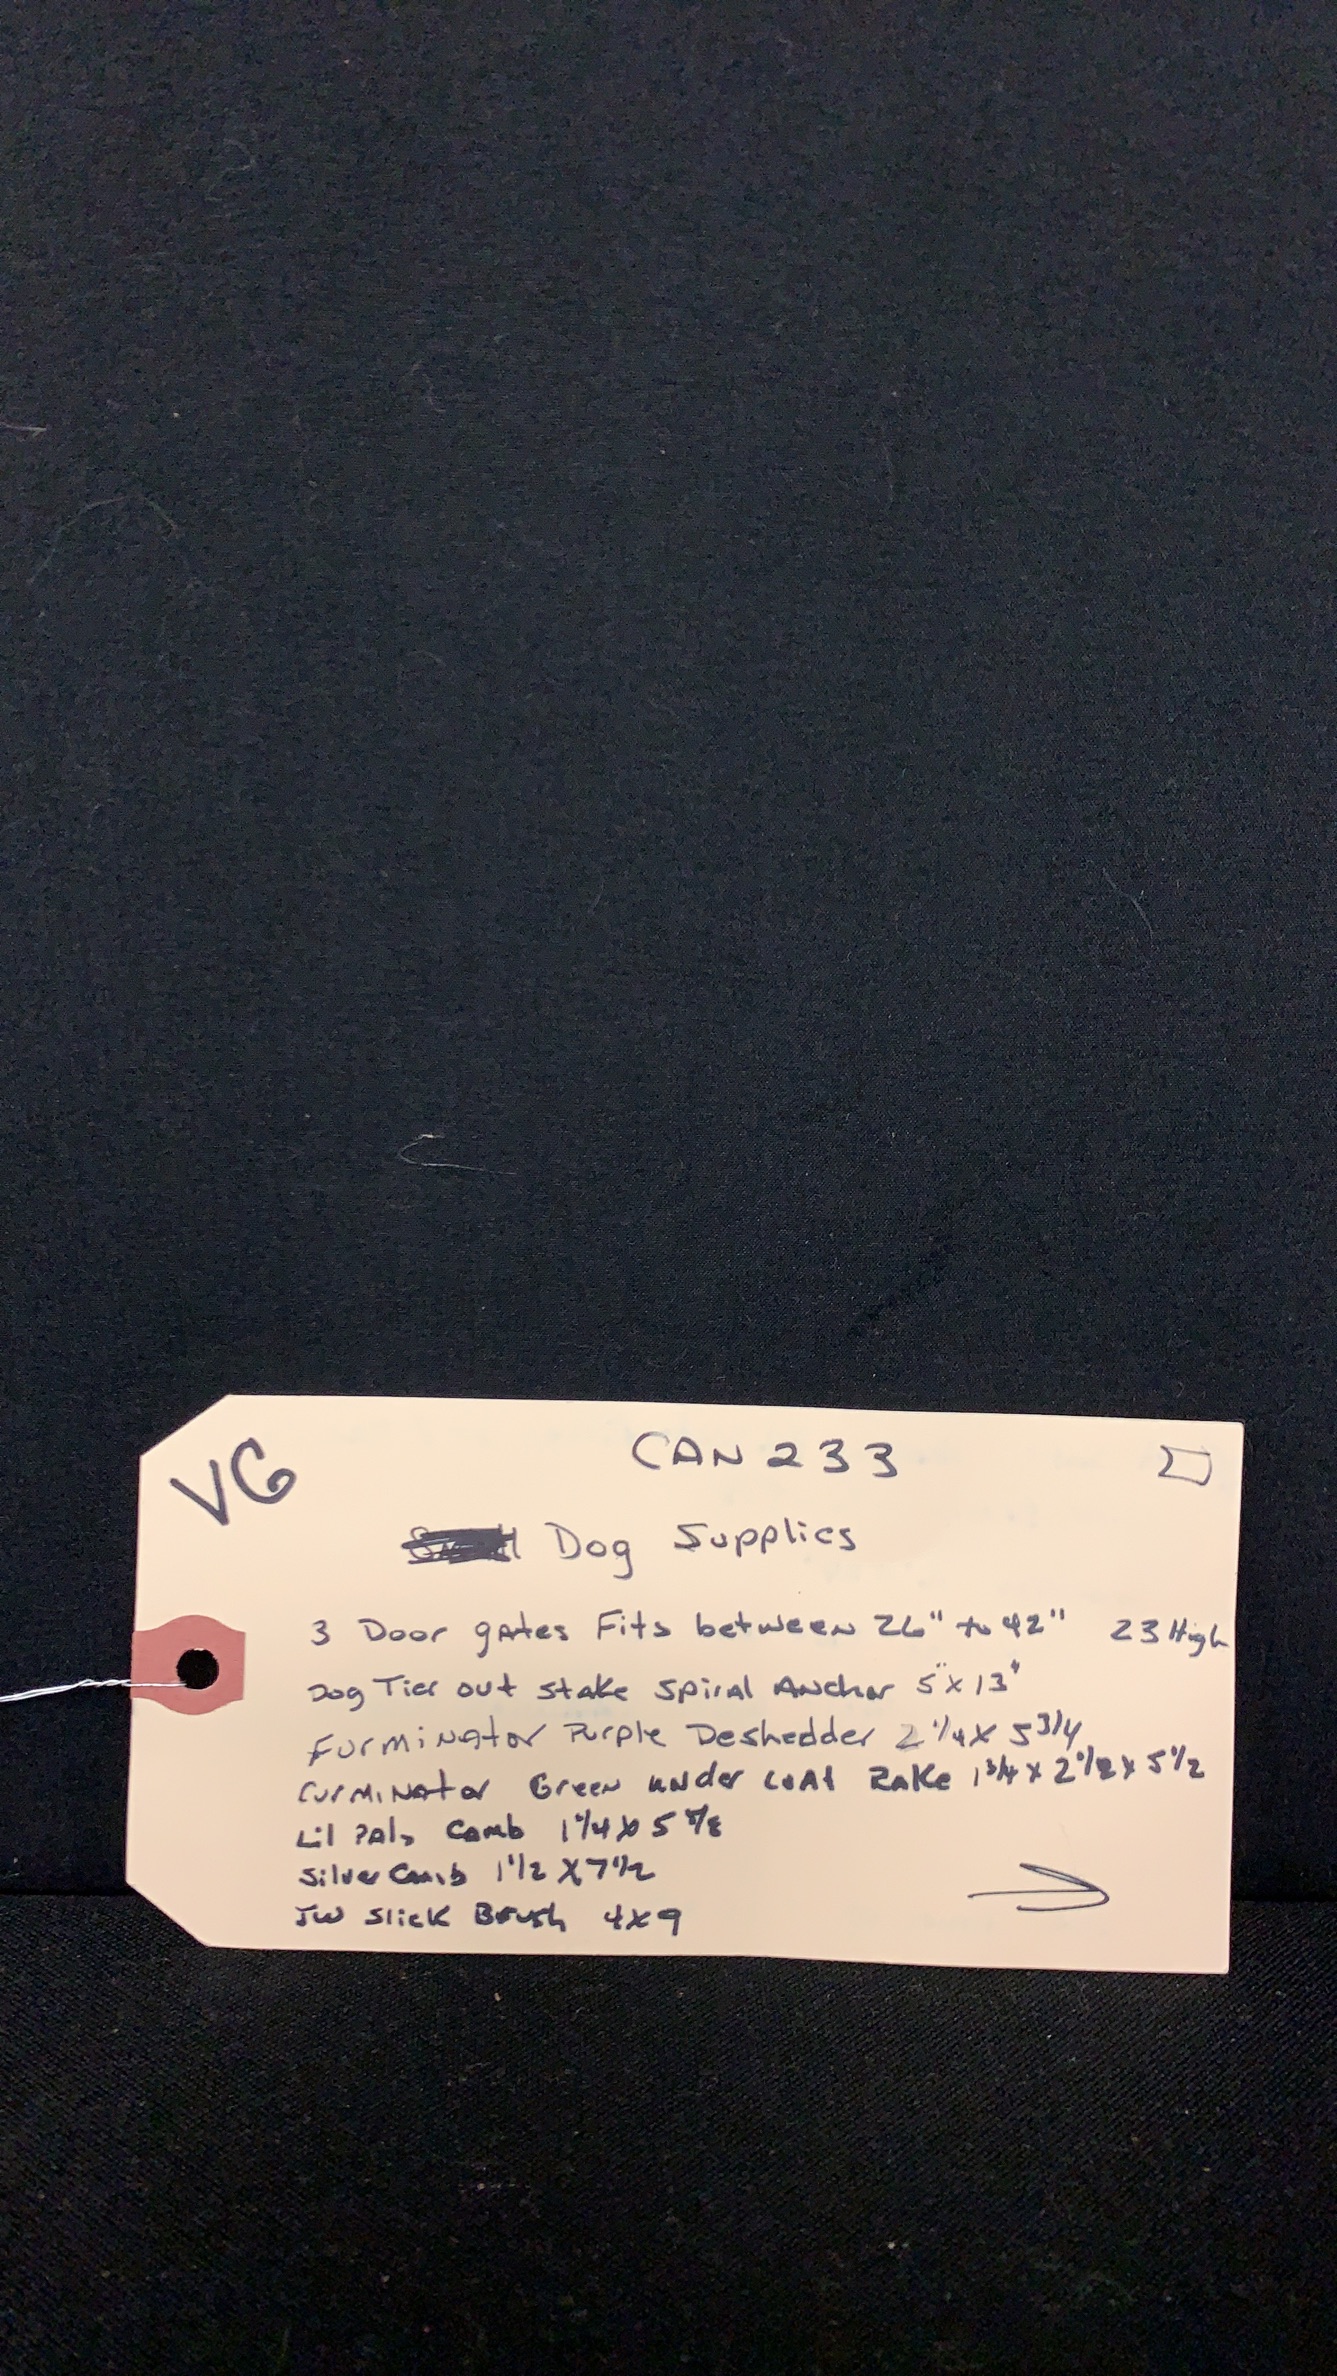 VG
CAN 233
Dog Supplies
3 Door gates Fits between 26" to 42" 23 High
Dog Tier out stake spiral Anchor 5" x 13"
Furminator Purple Deshedder 2 1/4 x 5 3/4
Furminator Green under coat Rake 1 3/4 x 2 1/2 x 5 1/2
Lil Pals Comb 1 1/4 x 5 7/8
Silver Comb 1 1/2 x 7 1/2
JW Slick Brush 4 x 9